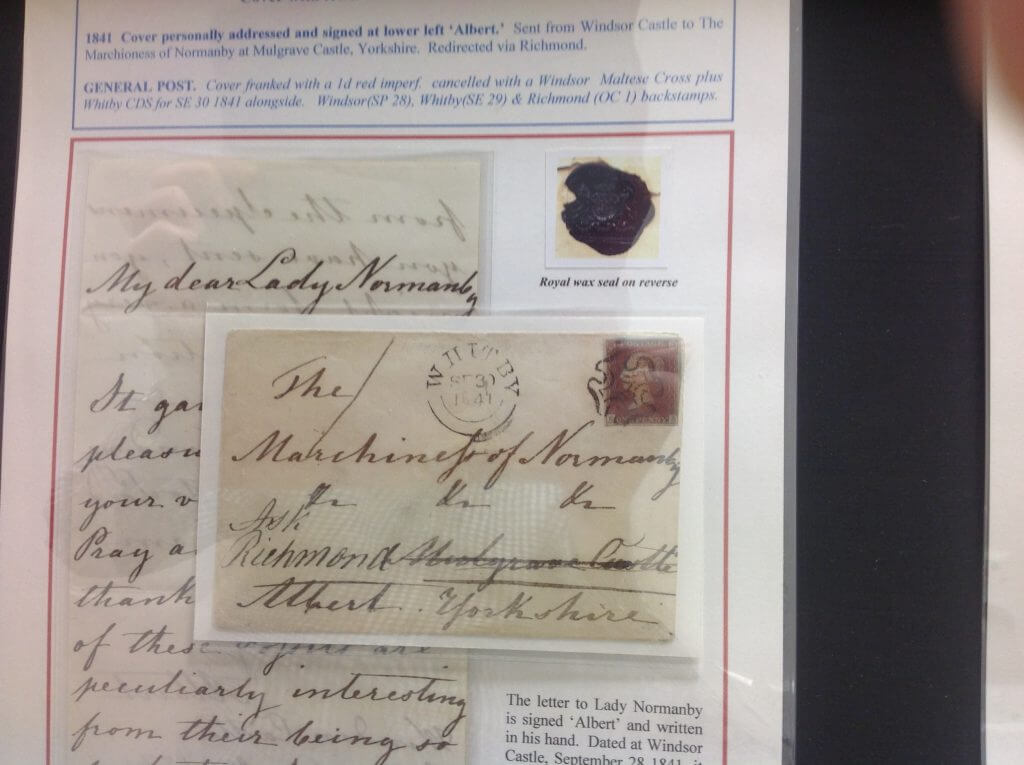 1841 Cover personally addressed and signed at lower left ‘Albert.’ Sent from Windsor Castle to The
Marchioness of Normanby at Mulgrave Castle, Yorkshire. Redirected via Richmond.
GENERAL POST. Cover franked with a 1d red imperf. cancelled with a Windsor Maltese Cross plus
Whitby CDS for SE 30 1841 alongside. Windsor(SP 28), Whitby(SE 29) & Richmond (OC 1) backstamps.
My dear Lady Normanby
It ga
pleasu
your v
Pray a
thank
of these are
peculiarly interesting
from their being so
Royal wax seal on reverse
WHITBY
SE 30
1841
ONE PENNY
The
Marchiness of Normanby
&c &c &c
Ask
Richmond Mulgrave Castle
Albert Yorkshire
The letter to Lady Normanby
is signed ‘Albert’ and written
in his hand. Dated at Windsor
Castle, September 28 1841 it